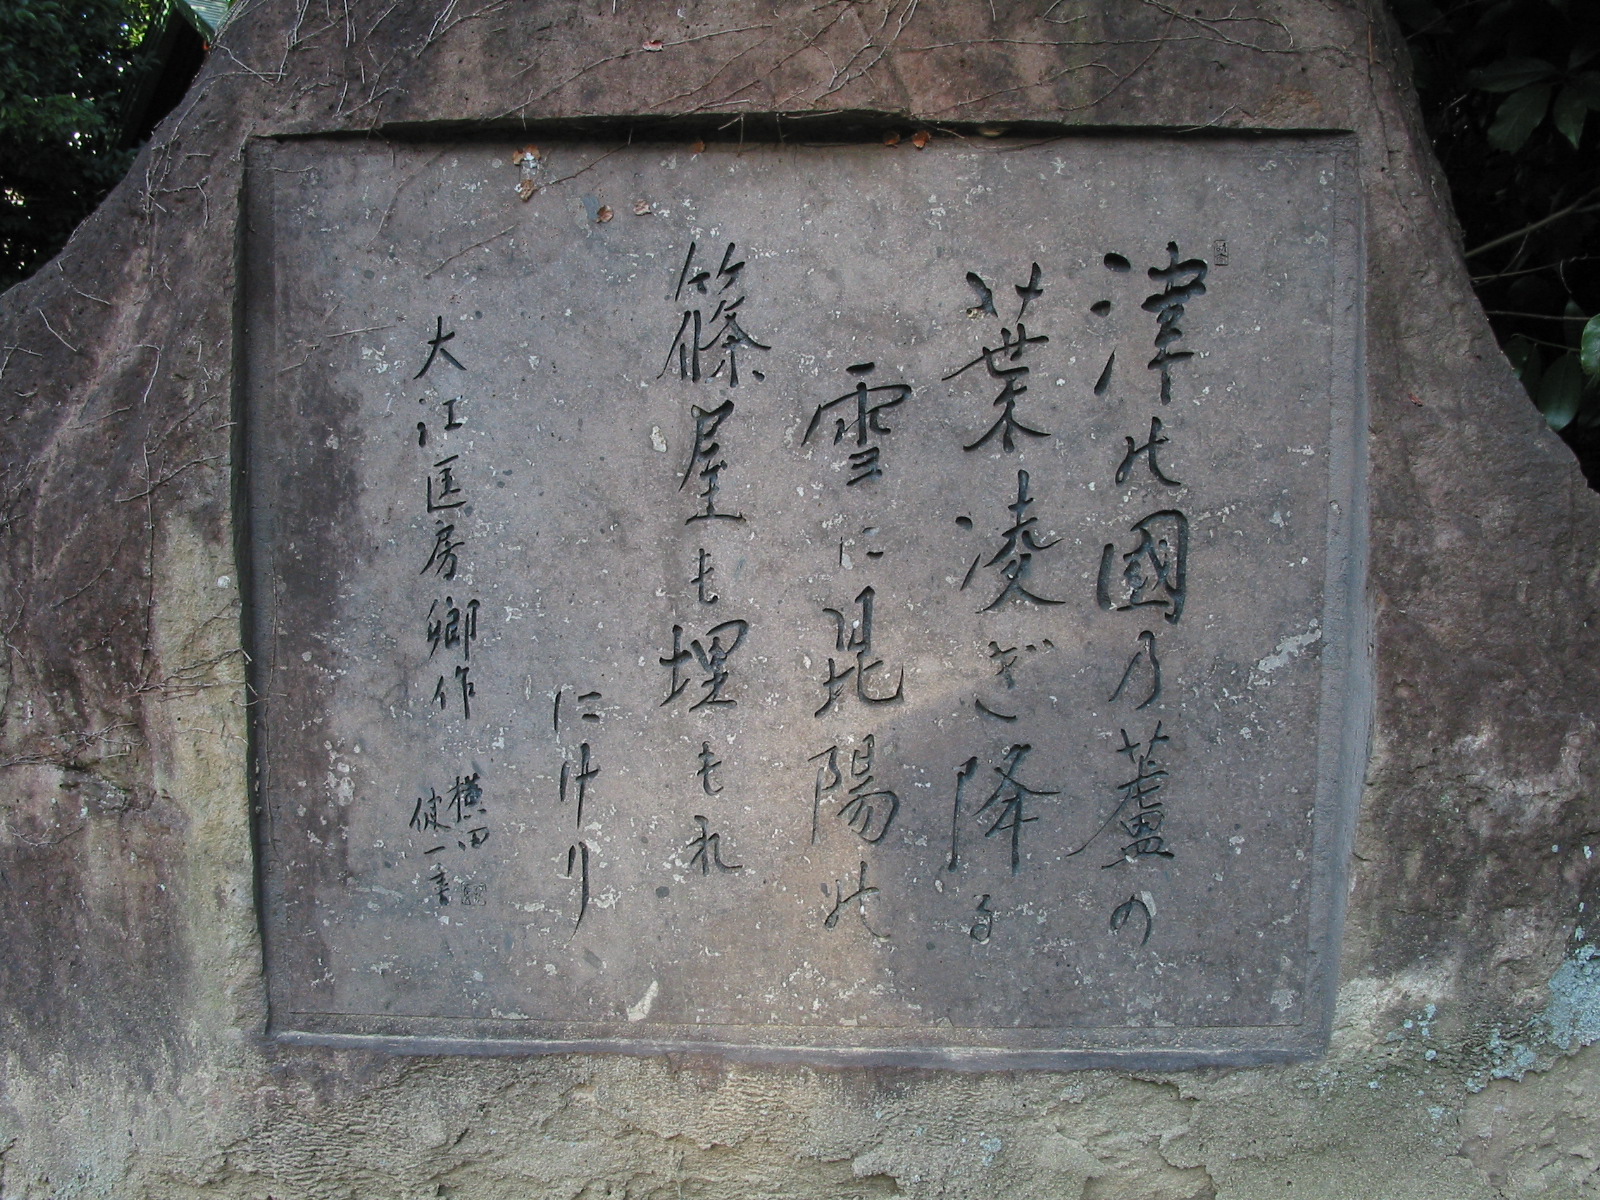 津此國乃蘆の
葉凌ぎ降る
雪に昆陽此
篠屋も埋もれ
にけり
大江匡房卿作
横田
健一書